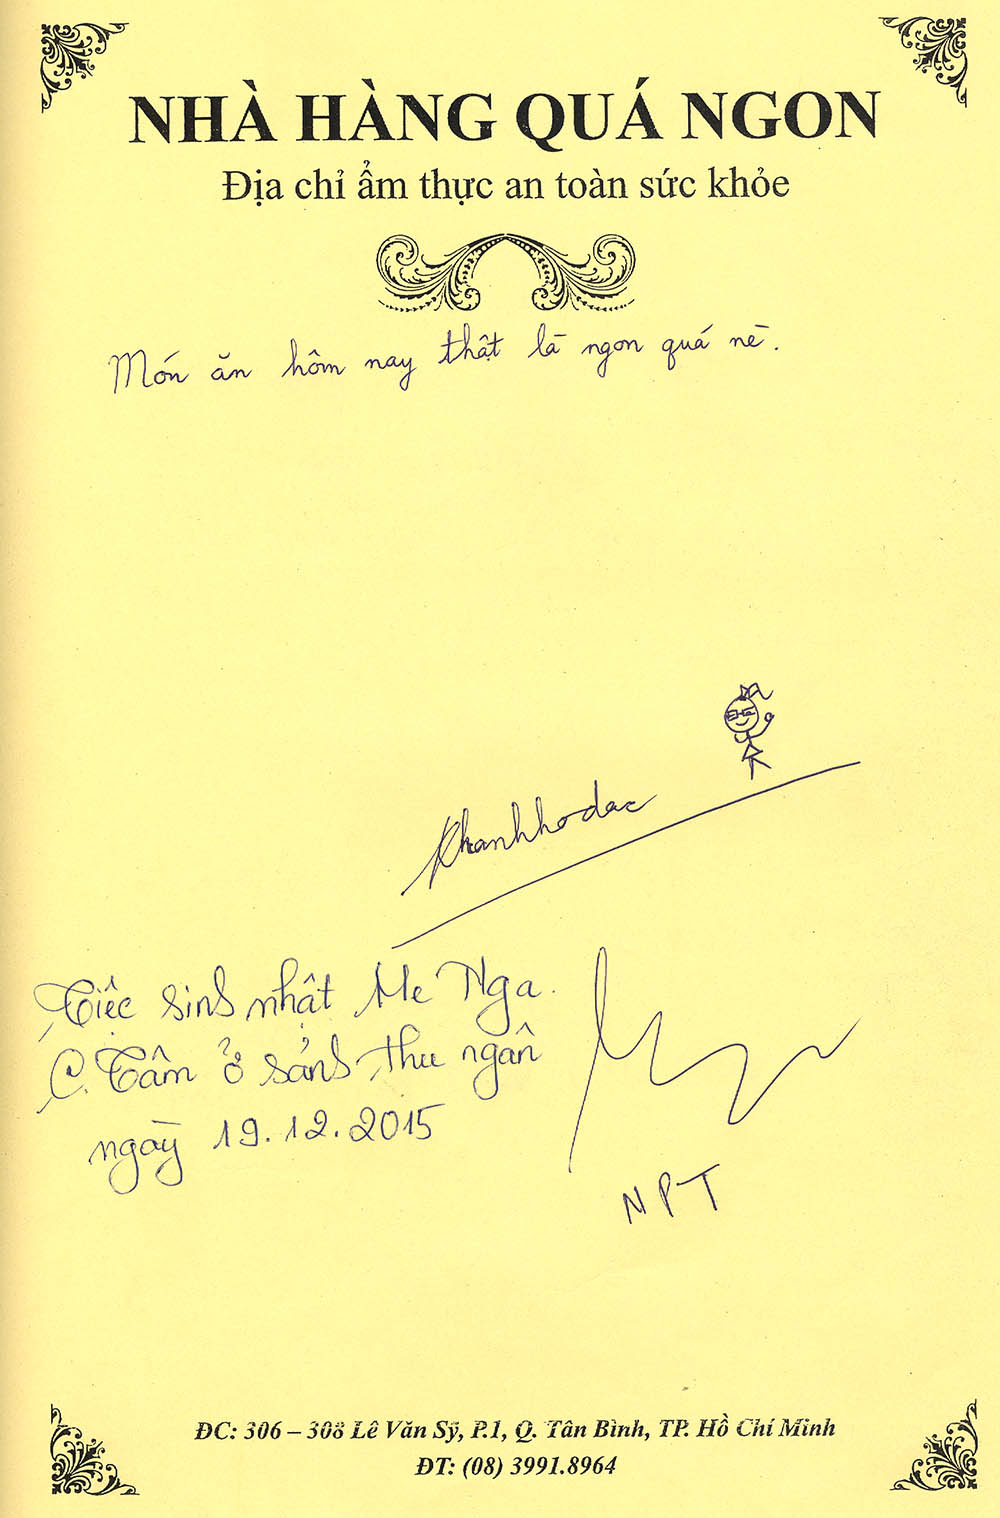 NHÀ HÀNG QUÁ NGON
Địa chỉ ẩm thực an toàn sức khỏe
Món ăn hôm nay thật là ngon quá nè.
Khanhhodac
Tiệc sinh nhật Mẹ Nga.
C. Tâm ở sảnh thu ngân
ngày 19.12.2015
NPT
ĐC: 306 – 308 Lê Văn Sỹ, P.1, Q. Tân Bình, TP. Hồ Chí Minh
ĐT: (08) 3991.8964